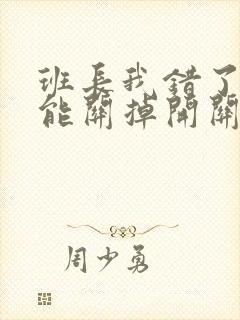 班長我錯了
能關掉開關
周少勇